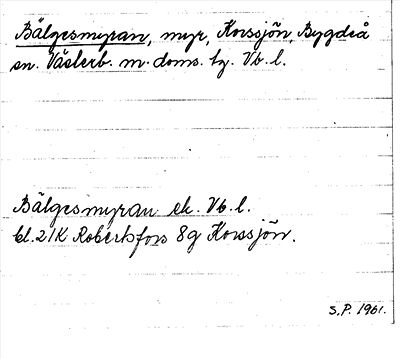 Bälgesmyran, myr, Korssjön, Bygdeå
sn. Västerb. m. doms. tg. Vb. l.
Bälgesmyran ek. Vb. l.
bl. 21K Robertsfors 8g Korssjön.
S.P. 1961.